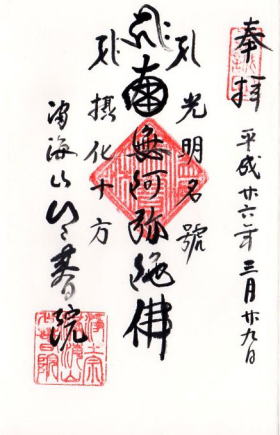 奉拝
平成廿六年三月廿九日
光明名號
南無阿弥陀佛
攝化十方
海山 春院
浄土宗